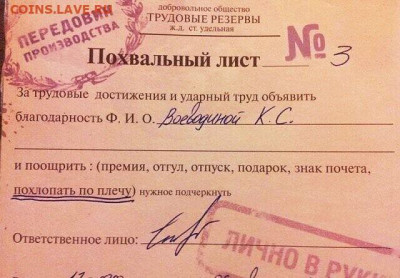 COINS.LAVE.RU
ПЕРЕДОВИК ПРОИЗВОДСТВА
добровольное общество
ТРУДОВЫЕ РЕЗЕРВЫ
ж.д. ст. удельная
Похвальный лист № 3
За трудовые достижения и ударный труд объявить
благодарность Ф. И. О. Воеводиной К. С.
и поощрить : (премия, отгул, отпуск, подарок, знак почета,
похлопать по плечу) нужное подчеркнуть
Ответственное лицо:
ЛИЧНО В РУКИ